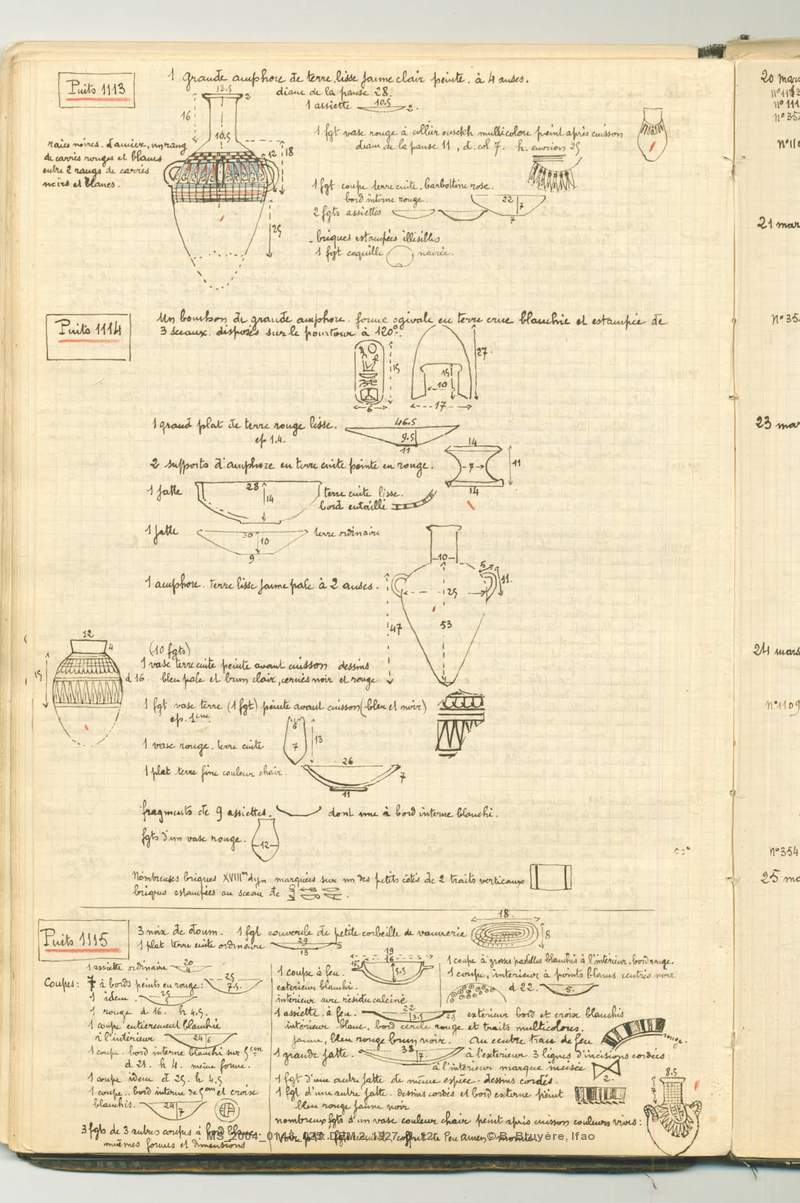 Puits 1113
1 grande amphore de terre lisse jaune clair peinte. à 4 anses.
diam de la panse 28.
13.5
2
16
10.5
12
18
25
raies noires. damier, un rang
de carrés rouges et blancs
entre 2 rangs de carrés
noirs et blancs.
1 assiette 10.5 2.
1 fgt vase rouge à collier ousekh multicolore peint après cuisson
diam de la panse 11, d. col 7. h. environ 25
1 fgt coupe terre cuite, barbotine rose.
bord interne rouge.
22
7
7
2 fgts assiettes
briques estampées illisibles
1 fgt coquille nacrée.
Puits 1114
Un bouchon de grande amphore. forme ogivale en terre crue blanchie et estampée de
3 sceaux. disposés sur le pourtour à 120°.
15
6
27
15
10
17
1 grand plat de terre rouge lisse.
ep 1.4.
46.5
9.5
11
2 supports d'amphore en terre cuite peinte en rouge.
14
7
11
14
1 jatte
28
14
terre cuite lisse.
bord entaillé
1 jatte
30
10
9
terre ordinaire
1 amphore. terre lisse jaune pale à 2 anses.
10
5
11.
25
47
53
12
4
15
d 16
(10 fgts)
1 vase terre cuite peinte avant cuisson dessins
bleu pale et brun clair, cernés noir et rouge
1 fgt vase terre (1 fgt) peinte avant cuisson (bleu et noir)
ep. 1cm
1 vase rouge. terre cuite
7
13
1 plat terre fine couleur chair.
26
7
11
fragments de 9 assiettes. dont une à bord interne blanchi.
fgts d'un vase rouge.
12
Nombreuses briques XVIIIme dyn marquées sur un des petits côtés de 2 traits verticaux
briques estampées au sceau de
Puits 1115
3 noix de doum. 1 fgt couvercle de petite corbeille de vannerie
18.
8
1 plat terre cuite ordinaire
29
5
13
1 assiette ordinaire
20
4
Coupes: 7 à bords peints en rouge:
25
7.5.
1 idem.
25
1 rouge d 16. h 4.5.
1 coupe entièrement blanchie
à l'intérieur
24
6
1 coupe. bord interne blanchi sur 5cm
d 21. h 4. même forme.
1 coupe idem d 25. h 4.5
1 coupe. bord interne de 5cm et croix
blanchis.
24
7
3 fgts de 3 autres coupes à bord blanc
mêmes formes et dimensions
1 coupe à feu.
extérieur blanchi.
intérieur avec résidu calciné
19
16
5.5
1 coupe à grosses pastilles blanchies à l'intérieur, bord rouge.
1 coupe, intérieur à points blancs centrés noir
d 22.
5.
1 assiette à feu.
22
3.5
extérieur bord et croix blanchis
intérieur blanc, bord cerclé rouge et traits multicolores.
jaune, bleu rouge brun noir. Au centre trace de feu
rouge.
1 grande jatte.
38
7
à l'extérieur 3 lignes d'incisions cordées
à l'intérieur marque incisée
2.
1 fgt d'une autre jatte de même espèce. dessins cordés.
1 fgt d'une autre jatte. dessins cordés et bord externe peint
bleu rouge jaune noir
nombreux fgts d'un vase couleur chair peint après cuisson couleurs vives:
8.5
7
MS_2004_0146_029 © B. Bruyère, Ifao
20 mars
N° 1113
N° 111
N° 35
N° 110
21 mar
N° 35
23 mar
24 mars
N° 1109
N° 354
25 ma